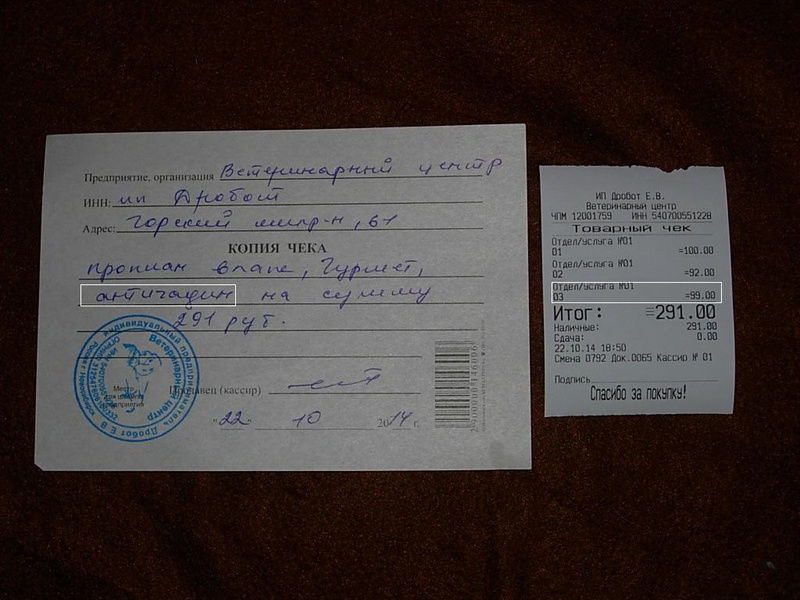 Предприятие, организация Ветеринарный центр
ИНН: ип Дробот
Адрес: Горский мкр-н, 61
КОПИЯ ЧЕКА
проплан влаж, Гурмет,
антигадин на сумму
291 руб.
индивидуальный предприниматель
Ветеринарный центр
Дробот Е В
Место
предприятия
Продавец (кассир)
"22" 10 2014 г.
ИП Дробот Е.В.
Ветеринарный центр
ЧПМ 12001759 ИНН 540700551228
Товарный чек
Отдел/услуга №01
01 =100.00
Отдел/услуга №01
02 =92.00
Отдел/услуга №01
03 =99.00
Итог: =291.00
Наличные: 291.00
Сдача: 0.00
22.10.14 18:50
Смена 0792 Док.0065 Кассир № 01
Подпись
Спасибо за покупку!